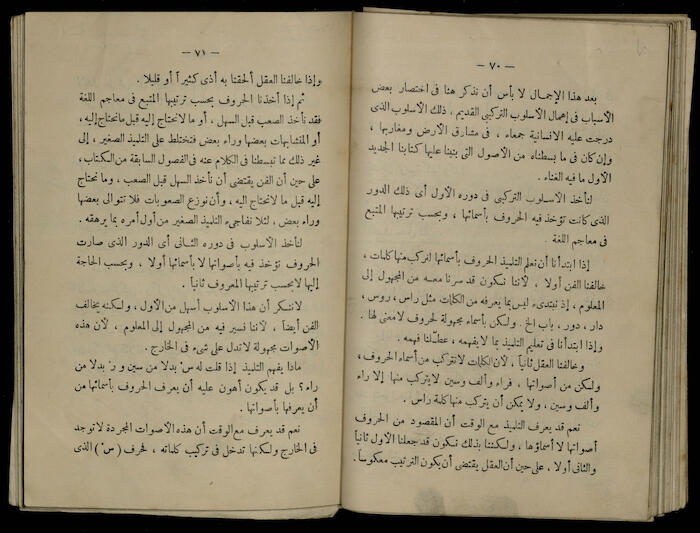 — ٧٠ —
بعد هذا الإجمال لا بأس أن نذكر هنا فى اختصار بعض
الأسباب فى إهمال الأسلوب التركيبى القديم ، ذلك الأسلوب الذى
درجت عليه الانسانية جمعاء ، فى مشارق الأرض ومغاربها ،
وإن كان فى ما بسطناه من الأصول التى بنينا عليها كتابنا الجديد
الأول ما فيه الغناء .
لنأخذ الأسلوب التركيبى فى دوره الأول أى ذلك الدور
الذى كانت تؤخذ فيه الحروف بأسمائها ، وبحسب ترتيبها المتبع
فى معاجم اللغة .
إذا ابتدأنا أن نعلم التلميذ الحروف بأسمائها لنركب منها كلمات ،
خالفنا الفن أولا ، لأننا نكون قد سرنا معه من المجهول إلى
المعلوم ، إذ نبتدىء ليس بما يعرفه من الكلمات مثل راس ، روس ،
دار ، دور ، باب الخ . ولكن بأسماء مجهولة لحروف لا معنى لها .
وإذا ابتدأنا فى تعليم التلميذ بما لا يفهمه ، عطلنا فهمه .
وخالفنا العقل ثانياً ، لأن الكلمات لا تتركب من أسماء الحروف ،
ولكن من أصواتها ، فراء وألف وسين لا يتركب منها إلا راء
وألف وسين ، ولا يمكن أن يتركب منها كلمة راس .
نعم قد يعرف التلميذ مع الوقت أن المقصود من الحروف
أصواتها لا أسماؤها ، ولكننا بذلك نكون قد جعلنا الأول ثانياً
والثانى أولا ، على حين أن العقل يقتضى أن يكون الترتيب معكوساً .
— ٧١ —
وإذا خالفنا العقل ألحقنا به أذى كثيراً أو قليلا .
ثم إذا أخذنا الحروف بحسب ترتيبها المتبع فى معاجم اللغة
فقد نأخذ الصعب قبل السهل ، أو ما لا نحتاج إليه قبل ما نحتاج إليه ،
أو المتشابهات بعضها وراء بعض فتختلط على التلميذ الصغير ، إلى
غير ذلك مما تبسطنا فى الكلام عنه فى الفصول السابقة من الكتاب ،
على حين أن الفن يقتضى أن نأخذ السهل قبل الصعب ، وما نحتاج
إليه قبل ما لا نحتاج اليه ، وأن نوزع الصعوبات فلا تتوالى بعضها
وراء بعض ، لئلا نفاجىء التلميذ الصغير من أول أمره بما يرهقه .
لنأخذ الأسلوب فى دوره الثانى أى الدور الذى صارت
الحروف تؤخذ فيه بأصواتها لا بأسمائها أولا ، وبحسب الحاجة
إليها لا بحسب ترتيبها المعروف ثانياً .
لا ننكر أن هذا الأسلوب أسهل من الأول ، ولكنه يخالف
الفن أيضاً ، لأننا نسير فيه من المجهول إلى المعلوم ، لأن هذه
الأصوات مجهولة لا تدل على شىء فى الخارج .
ماذا يفهم التلميذ إذا قلت له سْ بدلا من سين و رْ بدلا من
راء ؟ بل قد يكون أهون عليه أن يعرف الحروف بأسمائها من
أن يعرفها بأصواتها .
نعم قد يعرف مع الوقت أن هذه الأصوات المجردة لا توجد
فى الخارج ولكنها تدخل فى تركيب كلماته ، فحرف ( سْ ) الذى